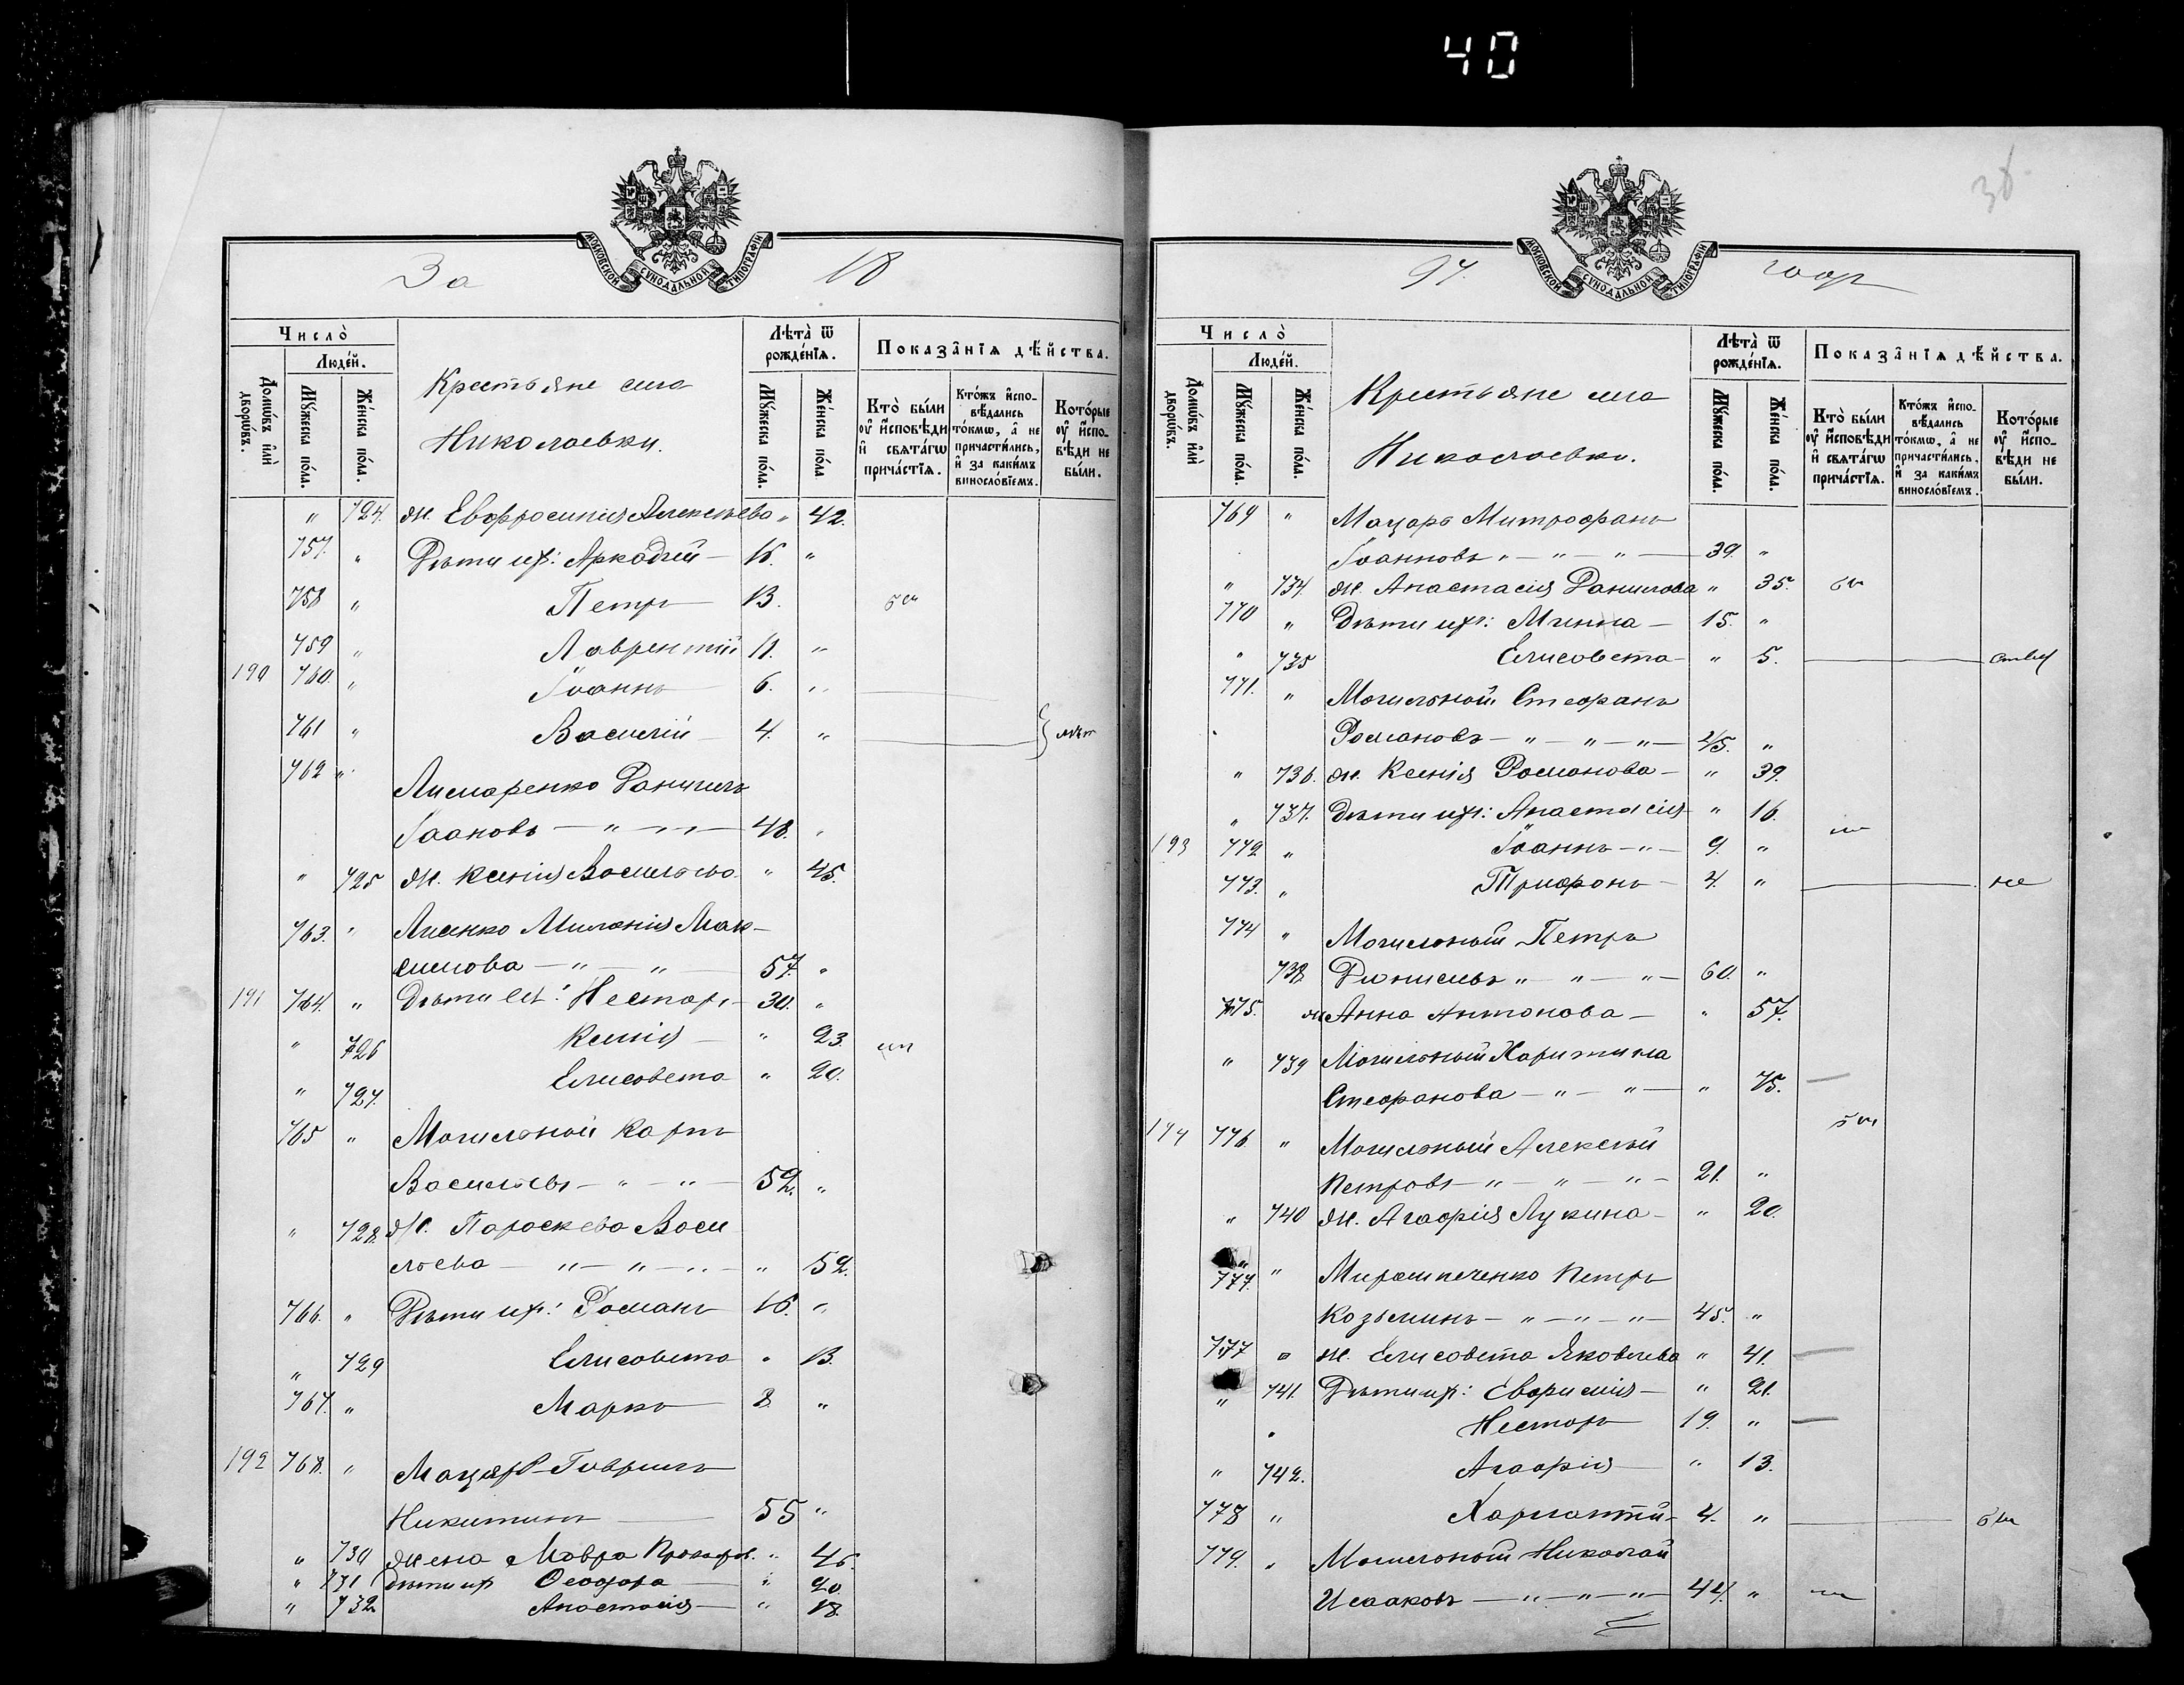 40
МОСКОВСКОЙ СУНОДАЛЬНОЙ ТИПОГРАФІИ
За 18
Число̀
Людéй.
Домѡ́въ и҆лѝ дворѡ́въ.
Мꙋ́жеска по́ла.
Же́нска по́ла.
Крестьяне села
Николаевки.
Лѣта̀ ѿ рожде́нїѧ.
Мꙋ́жеска по́ла.
Же́нска по́ла
Показа̑нїѧ дѣ́йства.
Кто̀ бы́ли ᲂу҆ и҆сповѣди и҆ свѧта́гѡ прича́стїѧ.
Кто́жъ и҆спо-вѣдались то́кмѡ, а҆ не причасти́лись, и҆ за каки́мъ винословїемъ.
Кото́рые ᲂу҆ и҆спо-вѣди не бы́ли.
" 724. ж. Евфросинія Алексѣева " 42.
757. " Дѣти ихъ: Аркадій — 16. "
758 " Петръ — 13. бы
759 " Лаврентій 11. "
190 760. " Іоаннъ — 6. "
761 " Василій — 4. " } лѣт
762 " Лимаренко Даніилъ
Іоановъ — " — " — 48. "
" 725 ж. Ксенія Васильева " 45.
763. " Лисенко Миланія Мак-
симова — " — " 57. "
191 764. " Дѣти ея: Несторъ — 30. "
" 726 Ксенія — " 23.
" 727. Елисавета " 20.
765 " Могильной Карпъ
Васильевъ — " — " — 52. "
" 728. ж. Параскева Васи
льева — " — " — " — " 52.
766. " Дѣти ихъ: Романъ 16. "
" 729 Елисавета " 13.
767. " Маркъ 8. "
192 768. " Мацаръ Гавріилъ
Никитинъ — 55 "
" 730 жена Мавра Прокоф. " 46
" 731 дѣти ихъ Ѳеодора " 20
" 732 Анастасія — " 18.
36
97. годъ
МОСКОВСКОЙ СУНОДАЛЬНОЙ ТИПОГРАФІИ
Число̀
Людéй.
Домѡ́въ и҆лѝ дворѡ́въ.
Мꙋ́жеска по́ла.
Же́нска по́ла.
Крестьяне села
Николаевки.
Лѣта̀ ѿ рожде́нїѧ.
Мꙋ́жеска по́ла.
Же́нска по́ла.
Показа̑нїѧ дѣ́йства.
Кто̀ бы́ли ᲂу҆ и҆сповѣди и҆ свѧта́гѡ прича́стїѧ.
Кто́жъ и҆спо-вѣдались то́кмѡ, а҆ не причасти́лись, и҆ за каки́мъ винословїемъ.
Кото́рые ᲂу҆ и҆спо-вѣди не бы́ли.
769 " Мацаръ Митрофанъ
Іоанновъ " — " — " — 39. "
" 734. ж. Анастасія Данилова " 35. бы
770 " Дѣти ихъ: Минна — 15. "
" 735 Елисавета — " 5.
771. " Могильной Стефанъ
Романовъ — " — " — " — 45. "
" 736. ж. Ксенія Романова — " 39.
" 737. Дѣти ихъ: Анастасія " 16.
193 772 " Іоаннъ — " — 9. "
773. " Трифонъ — 4. " не
774 " Могильный Петръ
738 Даниловъ " — " — " — 60. "
775. ж Анна Антонова — " 57.
" 739 Могильный Харитина
Стефанова — " — " — " 75.
194 776 " Могильный Алексѣй бы
Петровъ — " — " — " — 21. "
" 740 ж. Агафія Лукина — " 20.
777. " Мирошниченко Петръ
Козьминъ — " — " — " — 45. "
777 " ж. Елисавета Яковлева " 41.
" 741. Дѣти ихъ: Евфимія — " 21.
" Несторъ 19. "
" 742. Агафія — " 13.
778 " Харлампій — 4. " бы
779. " Могильный Николай
Исааковъ — " — " — " — 44. "